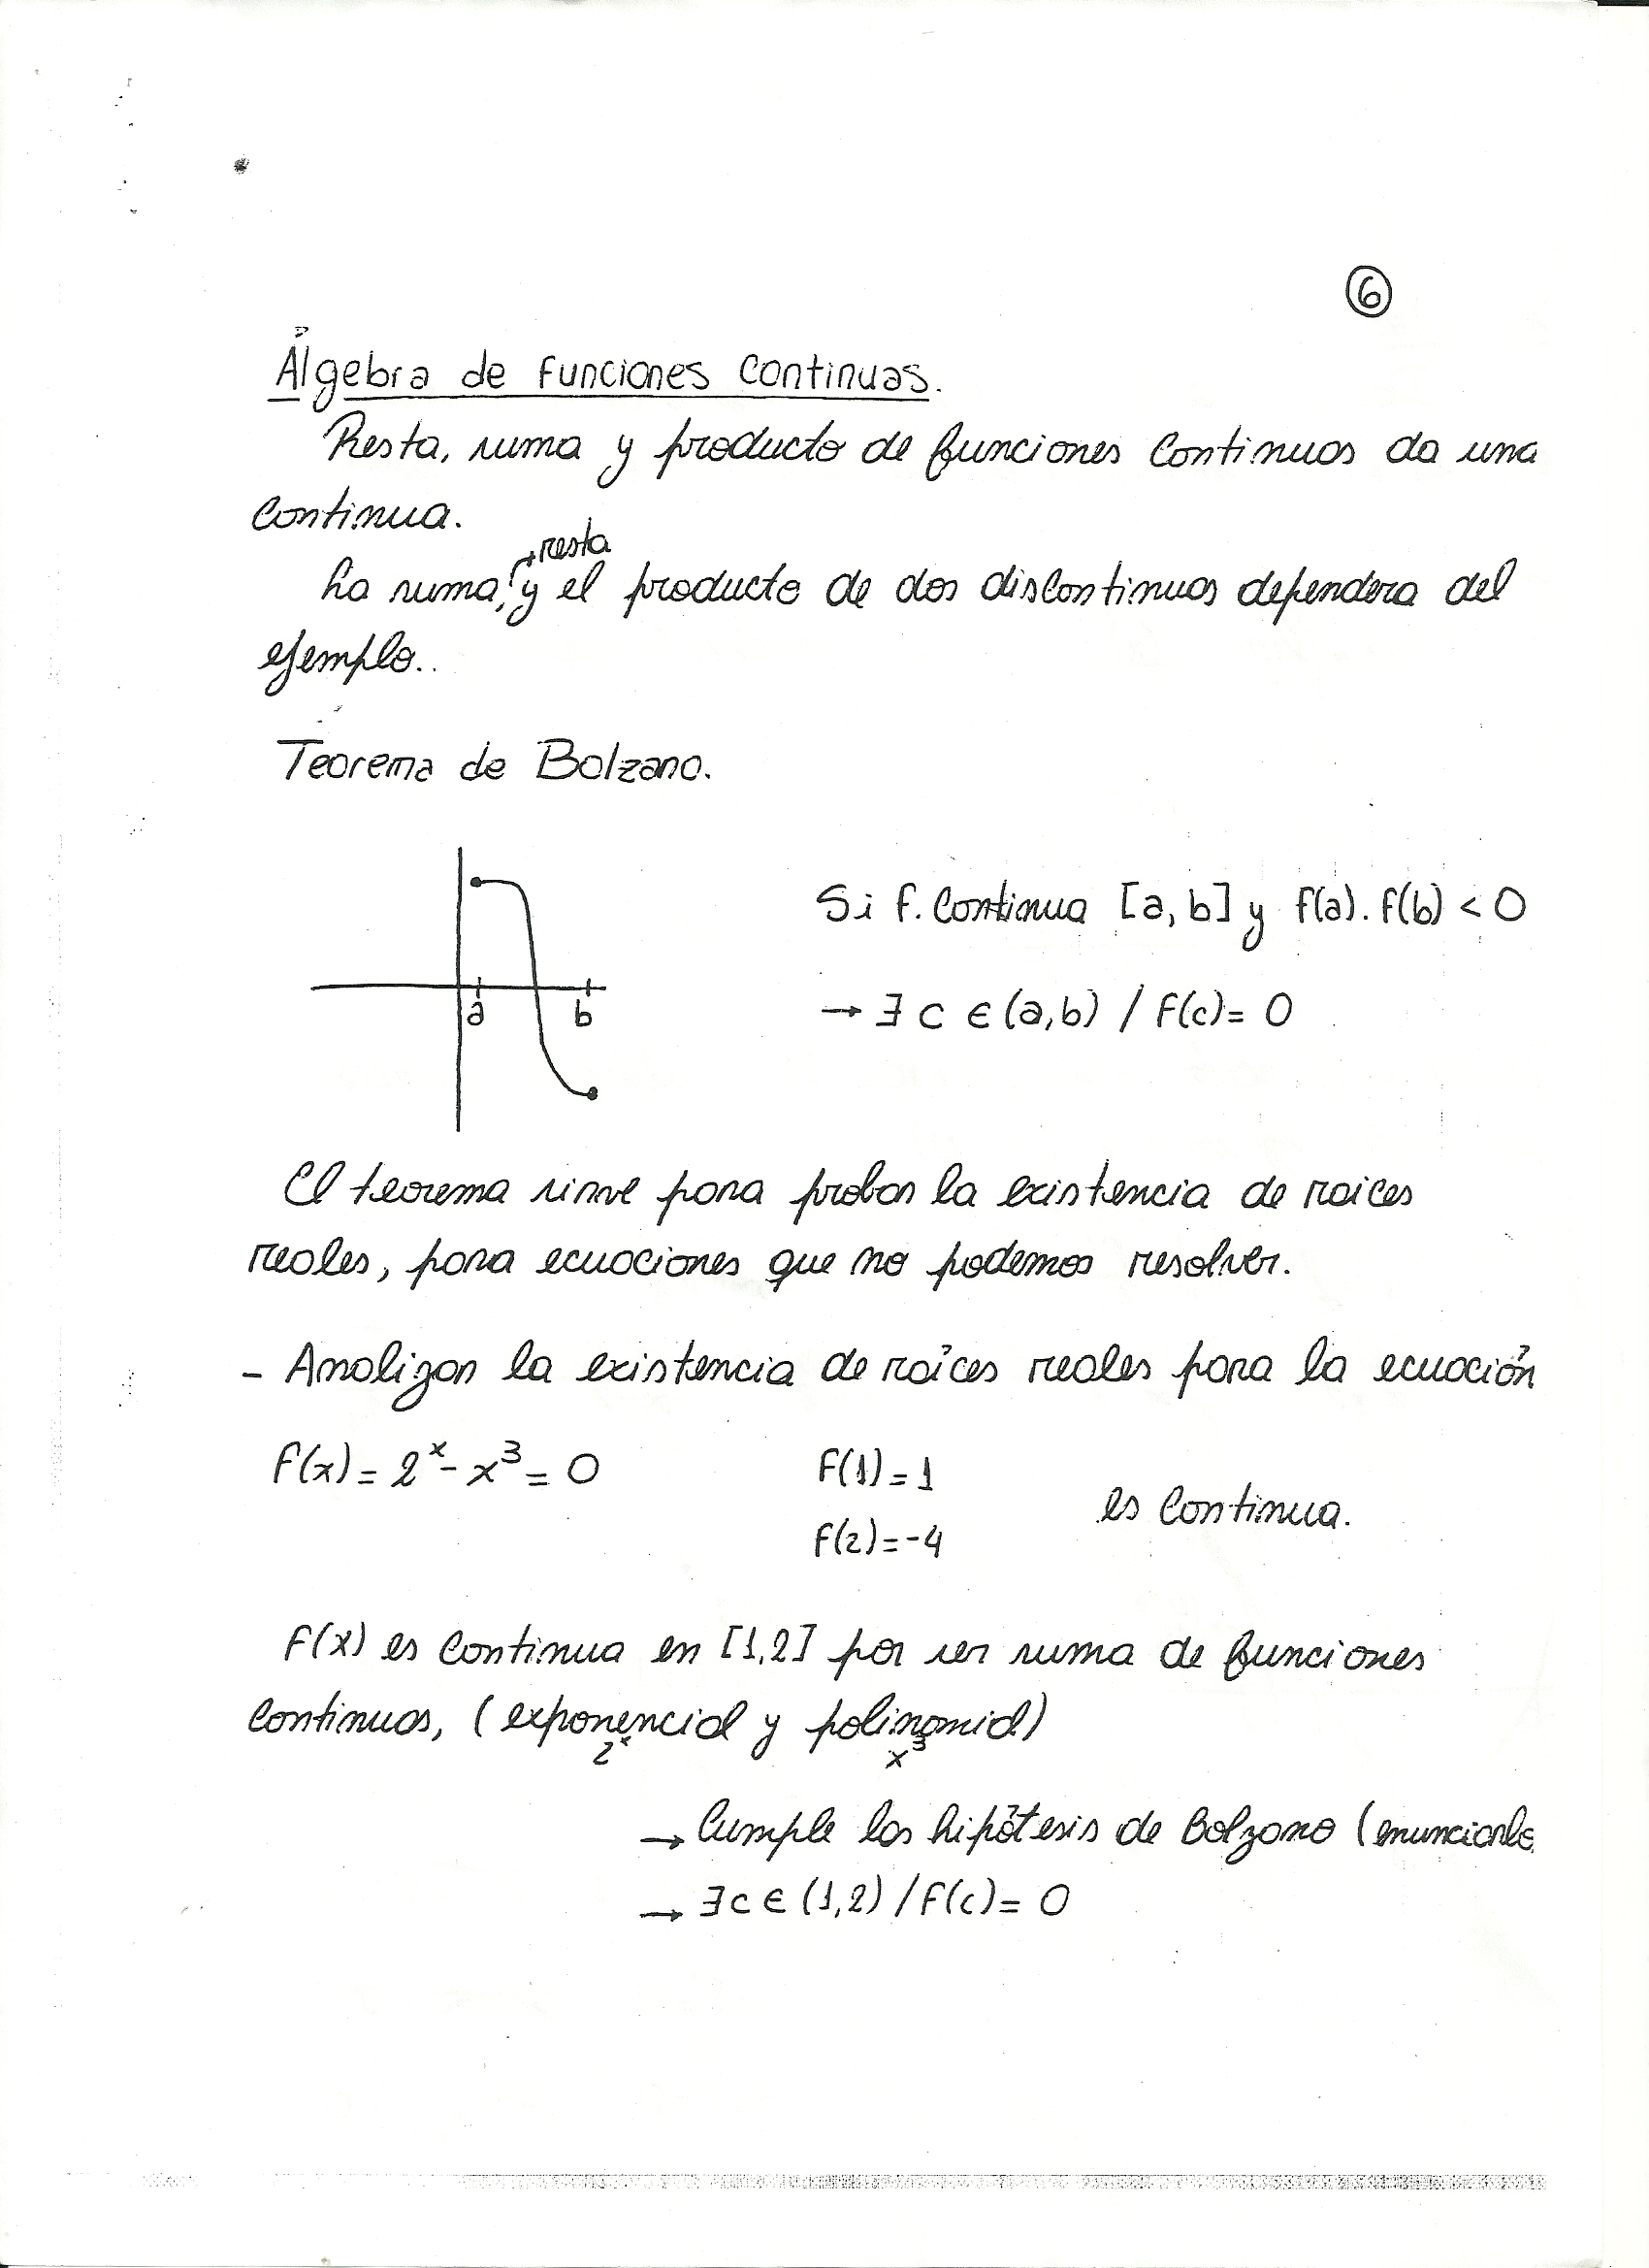 6
Álgebra de funciones continuas.
Resta, suma y producto de funciones continuas da una
continua.
resta
La suma, y el producto de dos discontinuas dependera del
ejemplo..
Teorema de Bolzano.
Si f. continua [a, b] y f(a). f(b) < 0
a b
→ ∃ c ∈ (a,b) / f(c) = 0
El teorema sirve para probar la existencia de raices
reales, para ecuaciones que no podemos resolver.
- Analizar la existencia de raíces reales para la ecuación
f(x) = 2ˣ - x³ = 0 f(1) = 1
es continua.
f(2) = -4
f(x) es continua en [1,2] por ser suma de funciones
continuas, (exponencial y polinomial)
2ˣ x³
→ Cumple las hipótesis de Bolzano (enunciarlo
→ ∃ c ∈ (1,2) / f(c) = 0